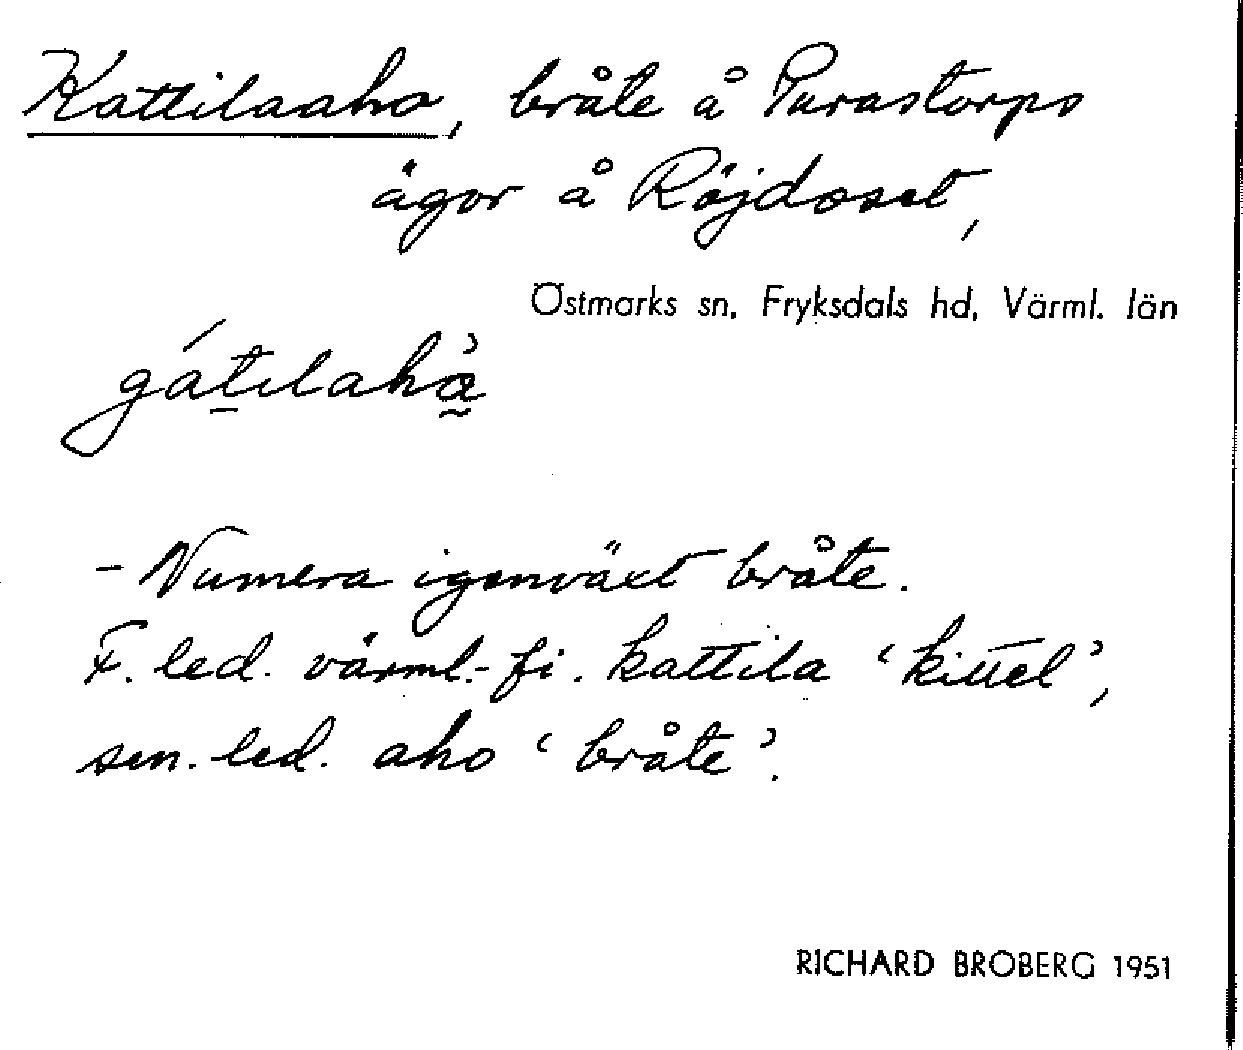 Kattilaaho, bråte å Purastorps
ägor å Röjdoset,
Östmarks sn, Fryksdals hd, Värml. län
gátilahà̰
- Numera igenväxt bråte.
F. led. värml.-fi. kattila ‘kittel’,
sen. led. aho ‘bråte’.
RICHARD BROBERG 1951